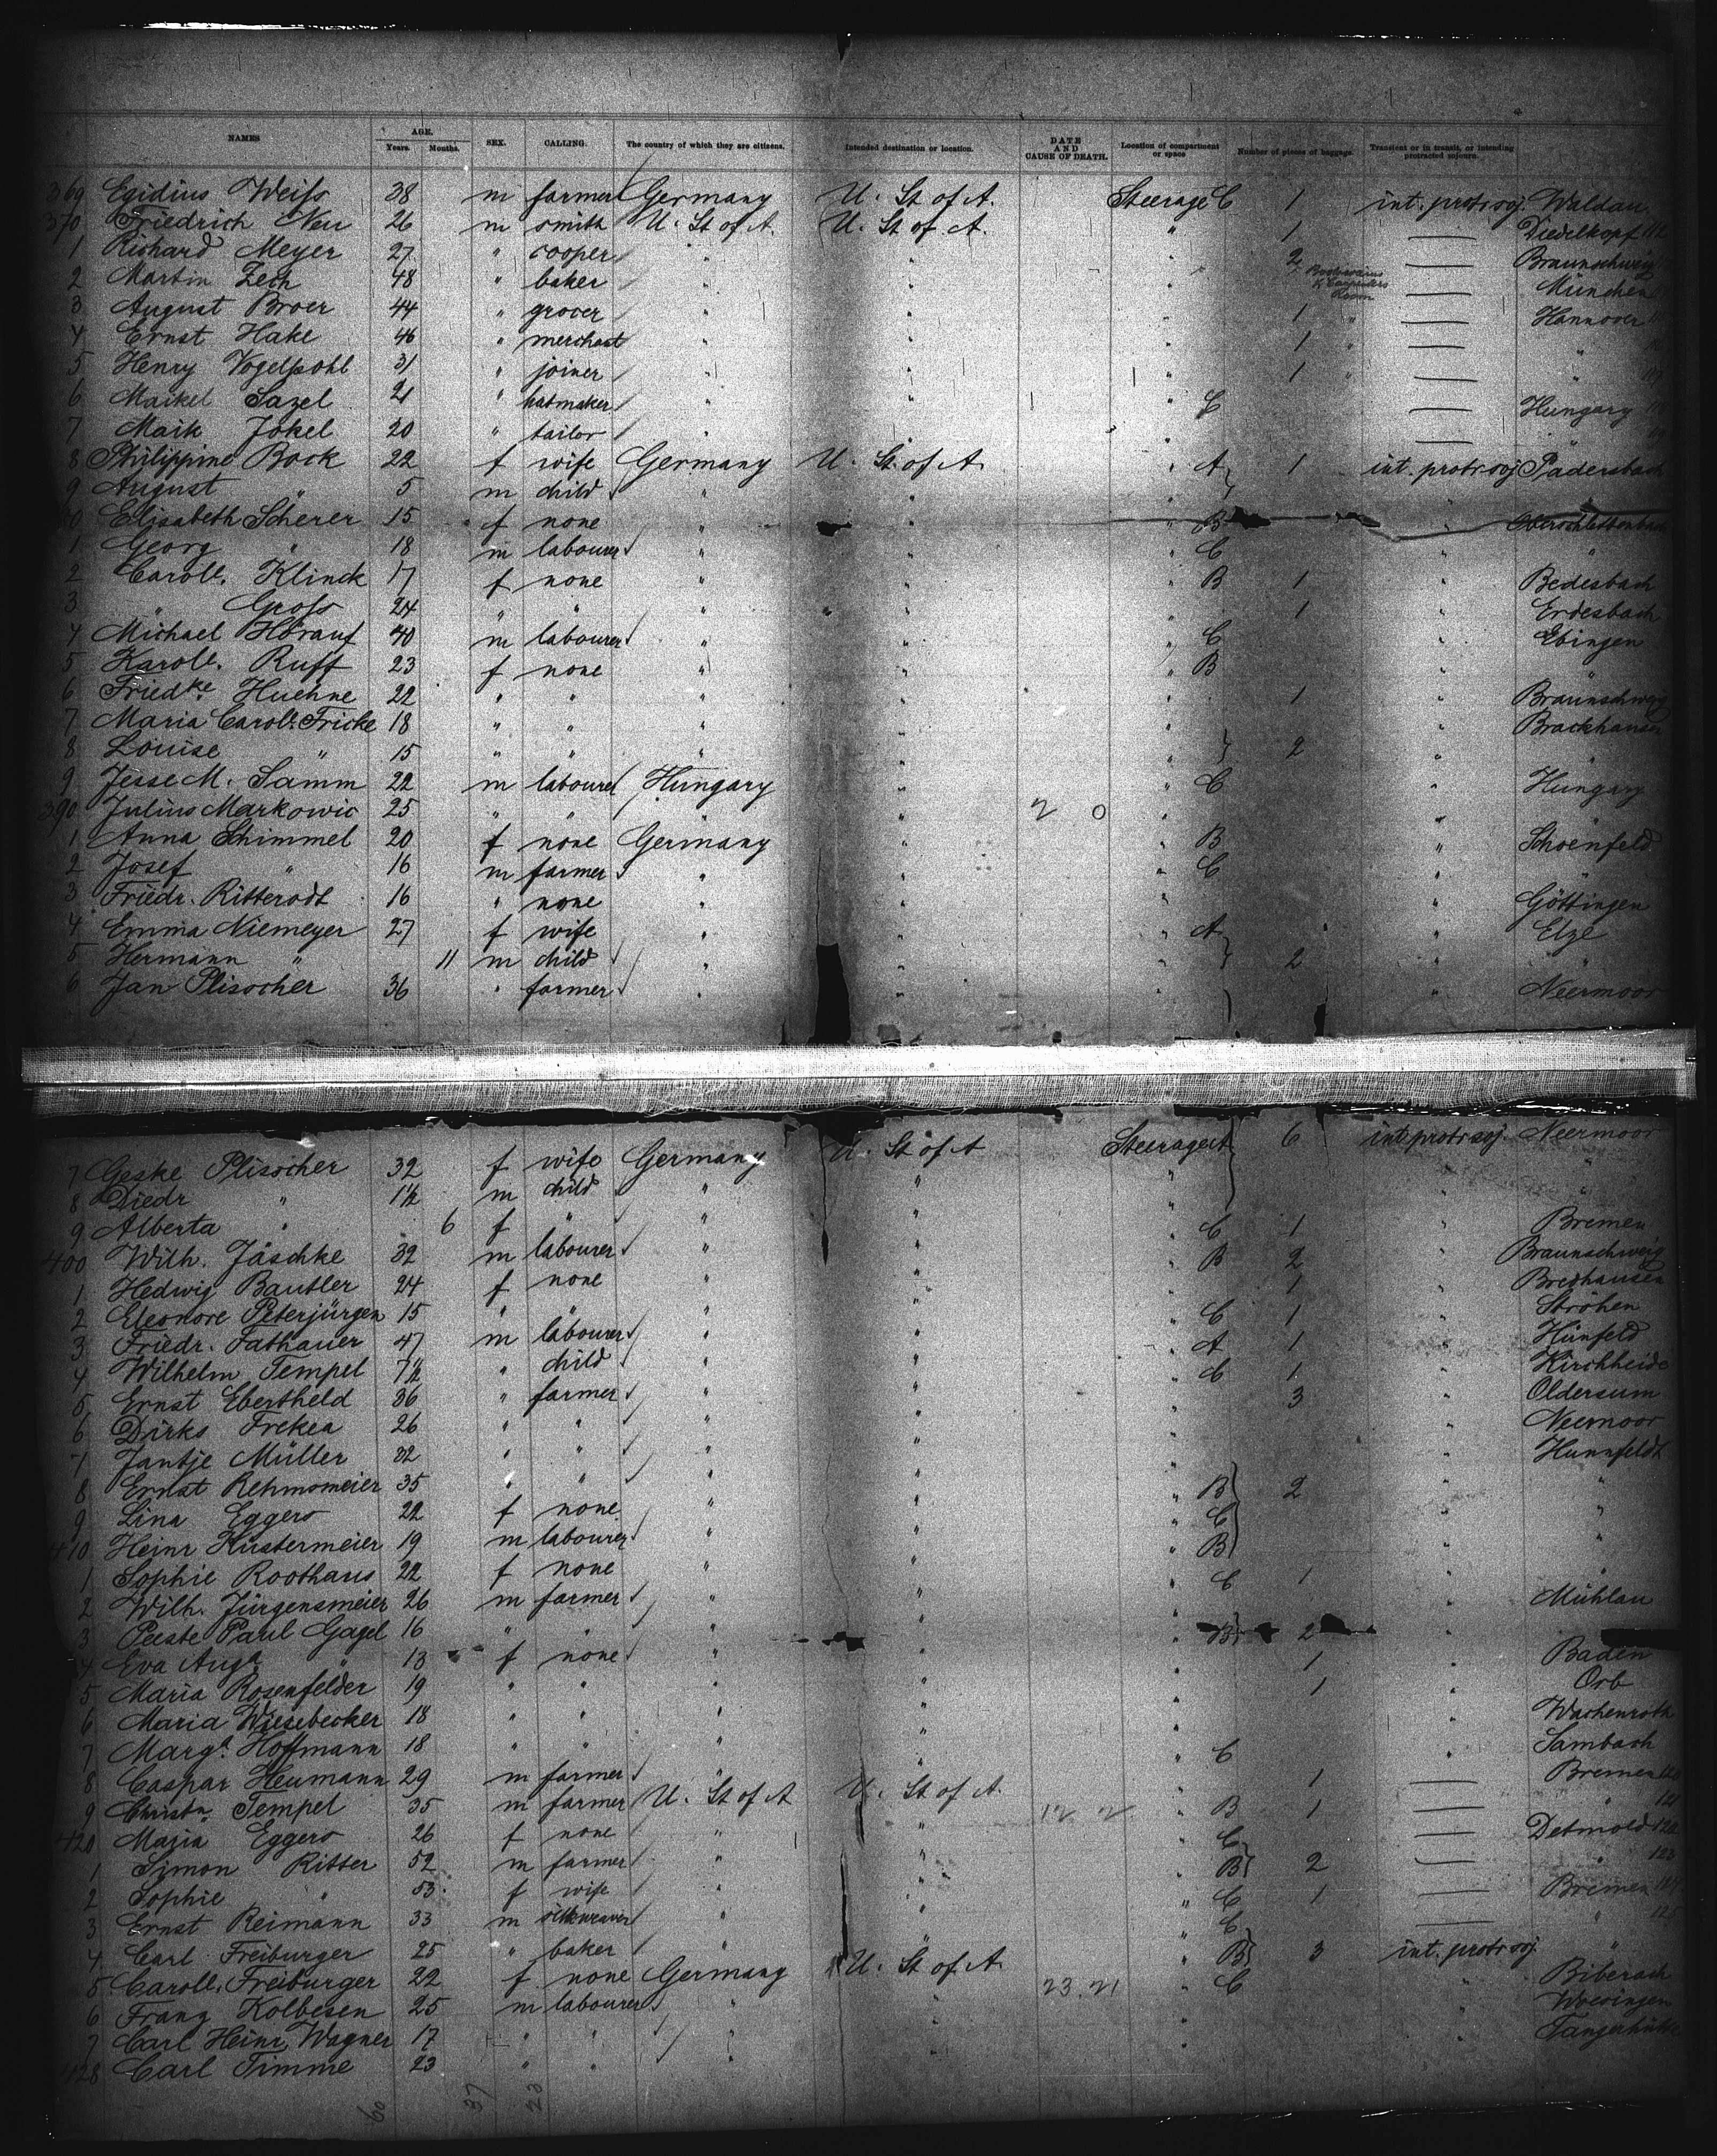 NAMES AGE. Years. Months. SEX. CALLING. The country of which they are citizens. Intended destination or location. DATE AND CAUSE OF DEATH. Location of compartment or space Number of pieces of baggage. Transient or in transit, or intending protracted sojourn.
369 Egidius Weiss 38 m farmer Germany U. St. of A. Steerage C 1 int. protr soj. Waldau
370 Friedrich Neu 26 m smith U. St. of A. U. St. of A. " 1 — Diedelkopf
1 Richard Meyer 27 " cooper " " " 2 — Braunschweig
2 Martin Zech 48 " baker " " " — München
3 August Broer 44 " grocer " " " 1 " — Hannover
4 Ernst Hake 46 " merchant " " " 1 " — "
5 Henry Vogelpohl 31 " joiner " " " 1 " — "
6 Maikel Sazel 21 " hatmaker " " " C — Hungary
7 Maik Jokel 20 " tailor " " " — "
8 Philippine Bock 22 f wife Germany U. St. of A. " A 1 int. protr soj Padersbach
9 August " 5 m child " " "
380 Elisabeth Scherer 15 f none " " " B "
1 Georg " 18 m labourer " " " C " "
2 Caroll. Klinck 17 f none " " " B 1 " Bedesbach
3 " Gross 24 " " " " " 1 " Erdesbach
4 Michael Hörauf 40 m labourer " " " C " Ebingen
5 Karoll. Ruff 23 f none " " " B " "
6 Friedke Huehne 22 " " " " " 1 " Braunschweig
7 Maria Carol. Fricke 18 " " " " " " Brackhausen
8 Louise " 15 " " " " " 2 " "
9 Jesse M. Samm 22 m labourer Hungary " " C " Hungary
390 Julius Markowic 25 " " " " 2 0 " " "
1 Anna Schimmel 20 f none Germany " " B " Schoenfeld
2 Josef " 16 m farmer " " " C " "
3 Friedr. Ritterodt 16 " none " " " " Göttingen
4 Emma Niemeyer 27 f wife " " " A " Elze
5 Hermann " 11 m child " " " 2 " "
6 Jan Plisocher 36 " farmer " " " " Neermoor
7 Geske Plisocher 32 f wife Germany U. St. of A Steerage A 6 int protr soj. Neermoor
8 Diedr " 1½ m child " " " " "
9 Alberta " 6 f " " " " " "
400 Wilh. Jäschke 32 m labourer " " " C 1 " Bremen
1 Hedwig Bautler 24 f none " " " B 2 " Braunschweig
2 Eleonore Peterjürgen 15 " " " " " 1 " Bredhausen
3 Friedr. Fathauer 47 m labourer " " " C 1 " Ströhen
4 Wilhelm Tempel 7½ " child " " " A 1 " Hünfeld
5 Ernst Ebertheld 36 " farmer " " " C 1 " Kirchheide
6 Dirks Frekea 26 " " " " " 3 " Oldersum
7 Jantje Müller 32 " " " " " " Neermoor
8 Ernst Rehmsmeier 35 " " " " " " Hunnfeldt
9 Lina Eggers 22 f none " " " B 2 " "
410 Heinr Hustermeier 19 m labourer " " " C " "
1 Sophie Roothaus 22 f none " " " B " "
2 Wilh. Jürgensmeier 26 m farmer " " " C 1 " "
3 Peeste Paul Gagel 16 " " " " " " Mühlau
4 Eva Auga " 13 f none " " " B 2 "
5 Maria Rosenfelder 19 " " " " " 1 " Baden
6 Maria Wiesebecker 18 " " " " " 1 " Orb
7 Marga. Hoffmann 18 " " " " " " Wachenroth
8 Caspar Heumann 29 m farmer " " " C " Sambach
9 Christn. Tempel 35 m farmer U. St. of A U. St. of A. 1 — Bremen
420 Maria Eggers 26 f none " " " B 1 — " 121
1 Simon Ritter 52 m farmer " " " C — Detmold 122
2 Sophie " 53 f wife " " " B 2 — " 123
3 Ernst Reimann 33 m silkweaver " " " C 1 — Bremen 124
4 Carl Freiburger 25 " baker " " " C — " 125
5 Caroll. Freiburger 22 f none Germany U. St. of A. " B 3 int. protr soj. "
6 Franz Kolbesen 25 m labourer " " 23.21 " C " Biberach
7 Carl Heinr. Wagner 17 " " " " "
428 Carl Timme 23 " " " " Tangerhütte
60 37 23